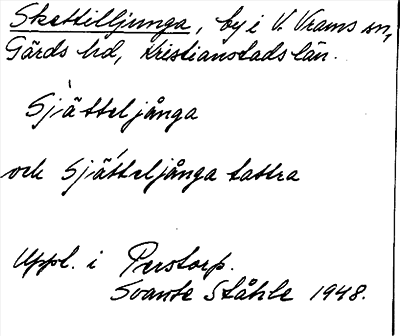 Skättilljunga, by i V. Vrams sn,
Gärds hd, Kristianstads län.
Sjätteljånga
och Sjätteljånga tattra
Uppl. i Perstorp.
Svante Ståhle 1948.